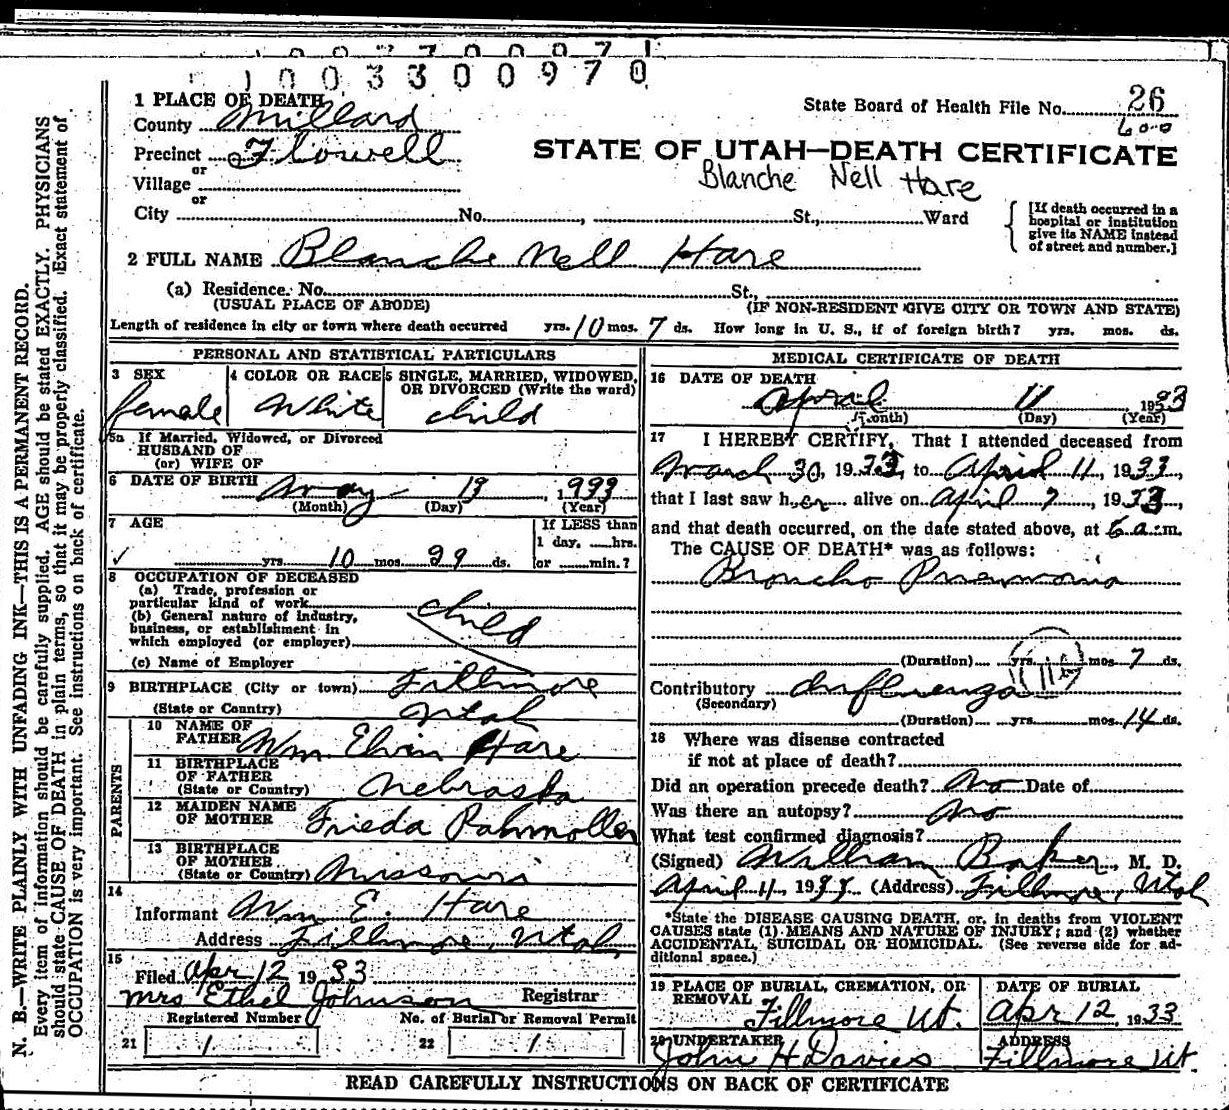 1003300970
1 PLACE OF DEATH
County Millard
State Board of Health File No. 26
600
Precinct Flowell
or
STATE OF UTAH—DEATH CERTIFICATE
Village
Blanche Nell Hare
or
City No. , St., Ward
[If death occurred in a
hospital or institution
give its NAME instead
of street and number.]
2 FULL NAME Blanche Nell Hare
(a) Residence. No. St.,
(USUAL PLACE OF ABODE) (IF NON-RESIDENT GIVE CITY OR TOWN AND STATE)
Length of residence in city or town where death occurred yrs. 10 mos. 7 ds. How long in U. S., if of foreign birth? yrs. mos. ds.
PERSONAL AND STATISTICAL PARTICULARS
3 SEX
female
4 COLOR OR RACE
White
5 SINGLE, MARRIED, WIDOWED,
OR DIVORCED (Write the word)
child
5a If Married, Widowed, or Divorced
HUSBAND OF
(or) WIFE OF
6 DATE OF BIRTH May 13
(Month) (Day) (Year)
7 AGE
If LESS than
1 day, hrs.
yrs. 10 mos. 29 ds. or min.?
8 OCCUPATION OF DECEASED
(a) Trade, profession or
particular kind of work
child
(b) General nature of industry,
business, or establishment in
which employed (or employer)
(c) Name of Employer
9 BIRTHPLACE (City or town) Fillmore
(State or Country) Utah
PARENTS
10 NAME OF
FATHER Wm. Elvin Hare
11 BIRTHPLACE
OF FATHER
(State or Country) Nebraska
12 MAIDEN NAME
OF MOTHER Frieda Pahmoller
13 BIRTHPLACE
OF MOTHER
(State or Country) Missouri
14
Informant Wm E. Hare
Address Fillmore, Utah
15
Filed Apr 12 1933
Mrs Ethel Johnson Registrar
Registered Number No. of Burial or Removal Permit
21 1 22 1
MEDICAL CERTIFICATE OF DEATH
16 DATE OF DEATH
April 11 1933
(Month) (Day) (Year)
17 I HEREBY CERTIFY, That I attended deceased from
March 30, 1933, to April 11, 1933
that I last saw her alive on April 7, 1933,
and that death occurred, on the date stated above, at 6 a.m.
The CAUSE OF DEATH* was as follows:
Broncho Pneumonia
(Duration) yrs. mos. 7 ds.
Contributory Influenza
(Secondary)
(Duration) yrs. mos. 14 ds.
18 Where was disease contracted
if not at place of death?
Did an operation precede death? No Date of
Was there an autopsy? No
What test confirmed diagnosis?
(Signed) William Baker, M. D.
April 11, 1933 (Address) Fillmore, Utah
*State the DISEASE CAUSING DEATH, or, in deaths from VIOLENT
CAUSES state (1) MEANS AND NATURE OF INJURY; and (2) whether
ACCIDENTAL, SUICIDAL OR HOMICIDAL. (See reverse side for ad-
ditional space.)
19 PLACE OF BURIAL, CREMATION, OR
REMOVAL
Fillmore Ut.
DATE OF BURIAL
Apr 12, 1933
20 UNDERTAKER
John H Davies
ADDRESS
Fillmore Ut.
READ CAREFULLY INSTRUCTIONS ON BACK OF CERTIFICATE
N. B.—WRITE PLAINLY WITH UNFADING INK—THIS IS A PERMANENT RECORD.
Every item of information should be carefully supplied. AGE should be stated EXACTLY. PHYSICIANS
should state CAUSE OF DEATH in plain terms, so that it may be properly classified. Exact statement of
OCCUPATION is very important. See instructions on back of certificate.